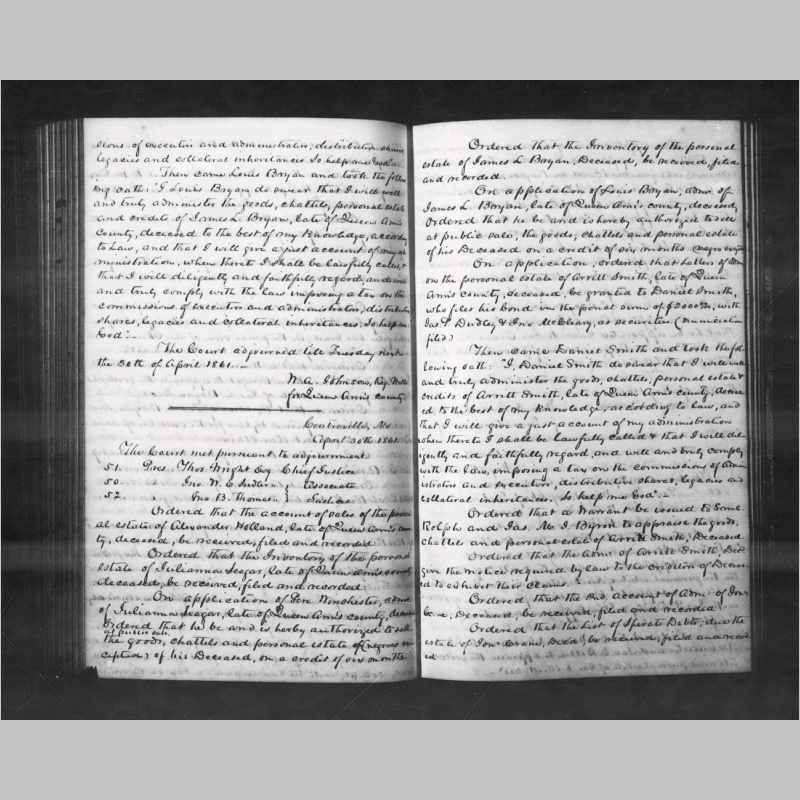 sions of executors and administrators, distributive shares
legacies and collateral inheritances. So help me God."
Then came Louis Bryan and took the follow
ing oath: "I Louis Bryan, do swear that I will well
and truly administer the goods, chattels, personal estate
and credits of James L. Bryan, late of Queen Ann's
County, deceased to the best of my knowledge, accordg
to Law, and that I will give a just account of my ad
ministration, when thereto I shall be lawfully called, &
that I will diligently and faithfully regard, and well
and truly comply with the law imposing a tax on the
commissions of executors and administrators, distributive
shares, legacies and collateral inheritances. So help me
God."
The Court adjourned till Tuesday next
the 30th of April 1861.
W. A. Johnson, Reg. Wills
for Queen Ann's county
Centreville, Md.
April 30th 1861
The Court met pursuant to adjournment
51. Pres. Thos Wright Esq Chief Justice
50. " Jno. W. E. } Associate
52. " Jno. B. Thomson } Justices
Ordered that the account of sales of the person
al estate of Alexander Holland, late of Queen Ann's coun
ty, deceased, be received, filed and recorded
Ordered that the Inventory of the personal
estate of Julianna Seegar, late of Queen Ann's county
deceased, be received, filed and recorded
On application of Pere Winchester, admr
of Julianna Seegar, late of Queen Ann's county, deceased
Ordered that he be and is herby authorized to sell
at public sale,
the goods, chattels and personal estate (negroes ex
cepted) of his Deceased, on a credit of six months
Ordered that the Inventory of the personal
estate of James L. Bryan, Deceased, be received, filed
and recorded.
On application of Louis Bryan, admr. of
James L. Bryan, late of Queen Ann's county, deceased,
Ordered that he be and is hereby authorized to sell
at public sale, the goods, chattels and personal estate
of his Deceased on a credit of six months
On application, ordered that Letters of adm
on the personal estate of Arritt Smith, late of Queen
Ann's County, deceased, be granted to Daniel Smith,
who files his bond in the penal sum of $2000, with
Jas. P. Dudley & Jno McCleary, as securities. (
filed)
Then came Daniel Smith and took the fol
lowing oath: "I, Daniel Smith do swear that I will well
and truly administer the goods, chattels, personal estate &
credits of Arritt Smith, late of Queen Ann's county, deceas
ed to the best of my knowledge, according to law, and
that I will give a just account of my administration
when thereto I shall be lawfully called & that I will dili
gently and faithfully regard, and will and truly comply
with the law, imposing a tax on the commissions of admin
istrators and executors, distributive shares, legacies and
collateral inheritances. So help me God."
Ordered that a Warrant be issued to Saml.
Rolph and Jas. M. J. Byron to appraise the goods,
chattels and personal estate of Arritt Smith, Deceased
Ordered that the admr of Arritt Smith, Dec
give the notice required by law to the creditors of Deceas
ed to exhibit their Claims.
Ordered that the 2nd account of Adm. of Jon
, Deceased, be received, filed and recorded
Ordered that the List of Sperate Debts, due the
estate of Jon. Evans, Dec'd, be received, filed and record
ed